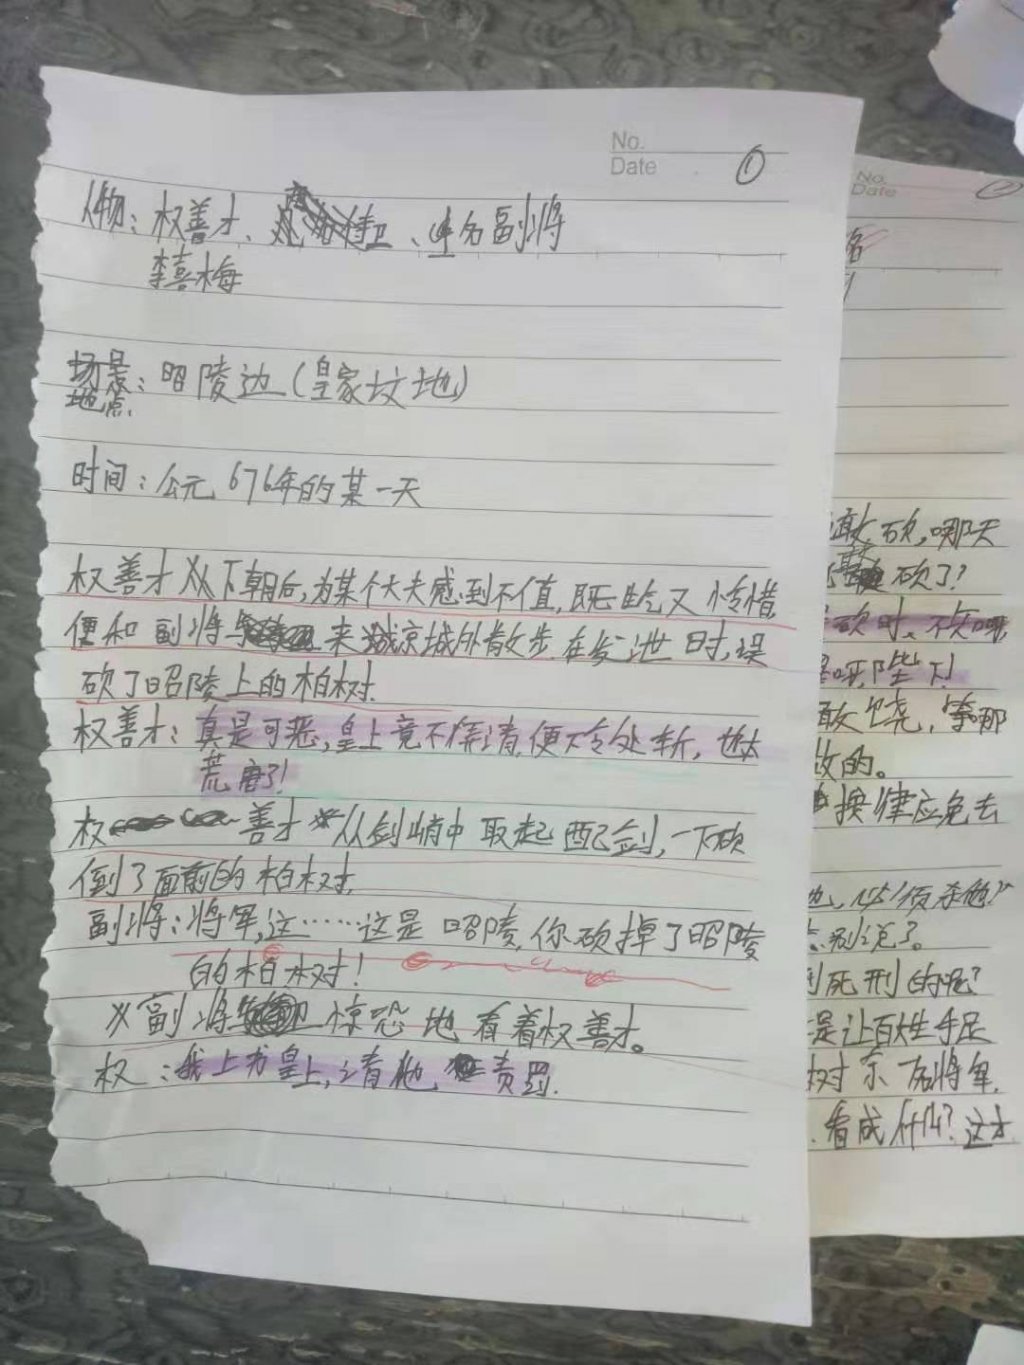 No.
Date
①
人物：权善才、侍卫、1名副将
李喜梅
场景：昭陵边（皇家坟地）
地点
时间：公元676年的某一天
权善才从下朝后，为某个大夫感到不值，既生气又怜惜，
便和副将来京城外散步，在发泄时，误
砍了昭陵上的柏树。
权善才：真是可恶，皇上竟不弄清，便下令处斩，也太
荒唐了！
权善才从剑峭中取起配剑，一下砍
倒了面前的柏树。
副将：将军，这……这是昭陵，你砍掉了昭陵
的柏树！
副将惊恐地看着权善才。
权：我上为皇上，请他责罚.
No.
Date
②
敢砍，哪天
砍了？
砍时，不知哪
是呀，陛下！
敢饶，等那
做的。
换律应免去
他，必须杀他？
别说了。
到死刑的呢？
是让百姓手足
树杀 右将军，
看成什么？这才